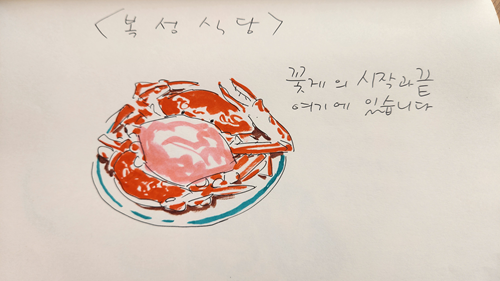 <복성식당>
꽃게의 시작과 끝
여기에 있습니다